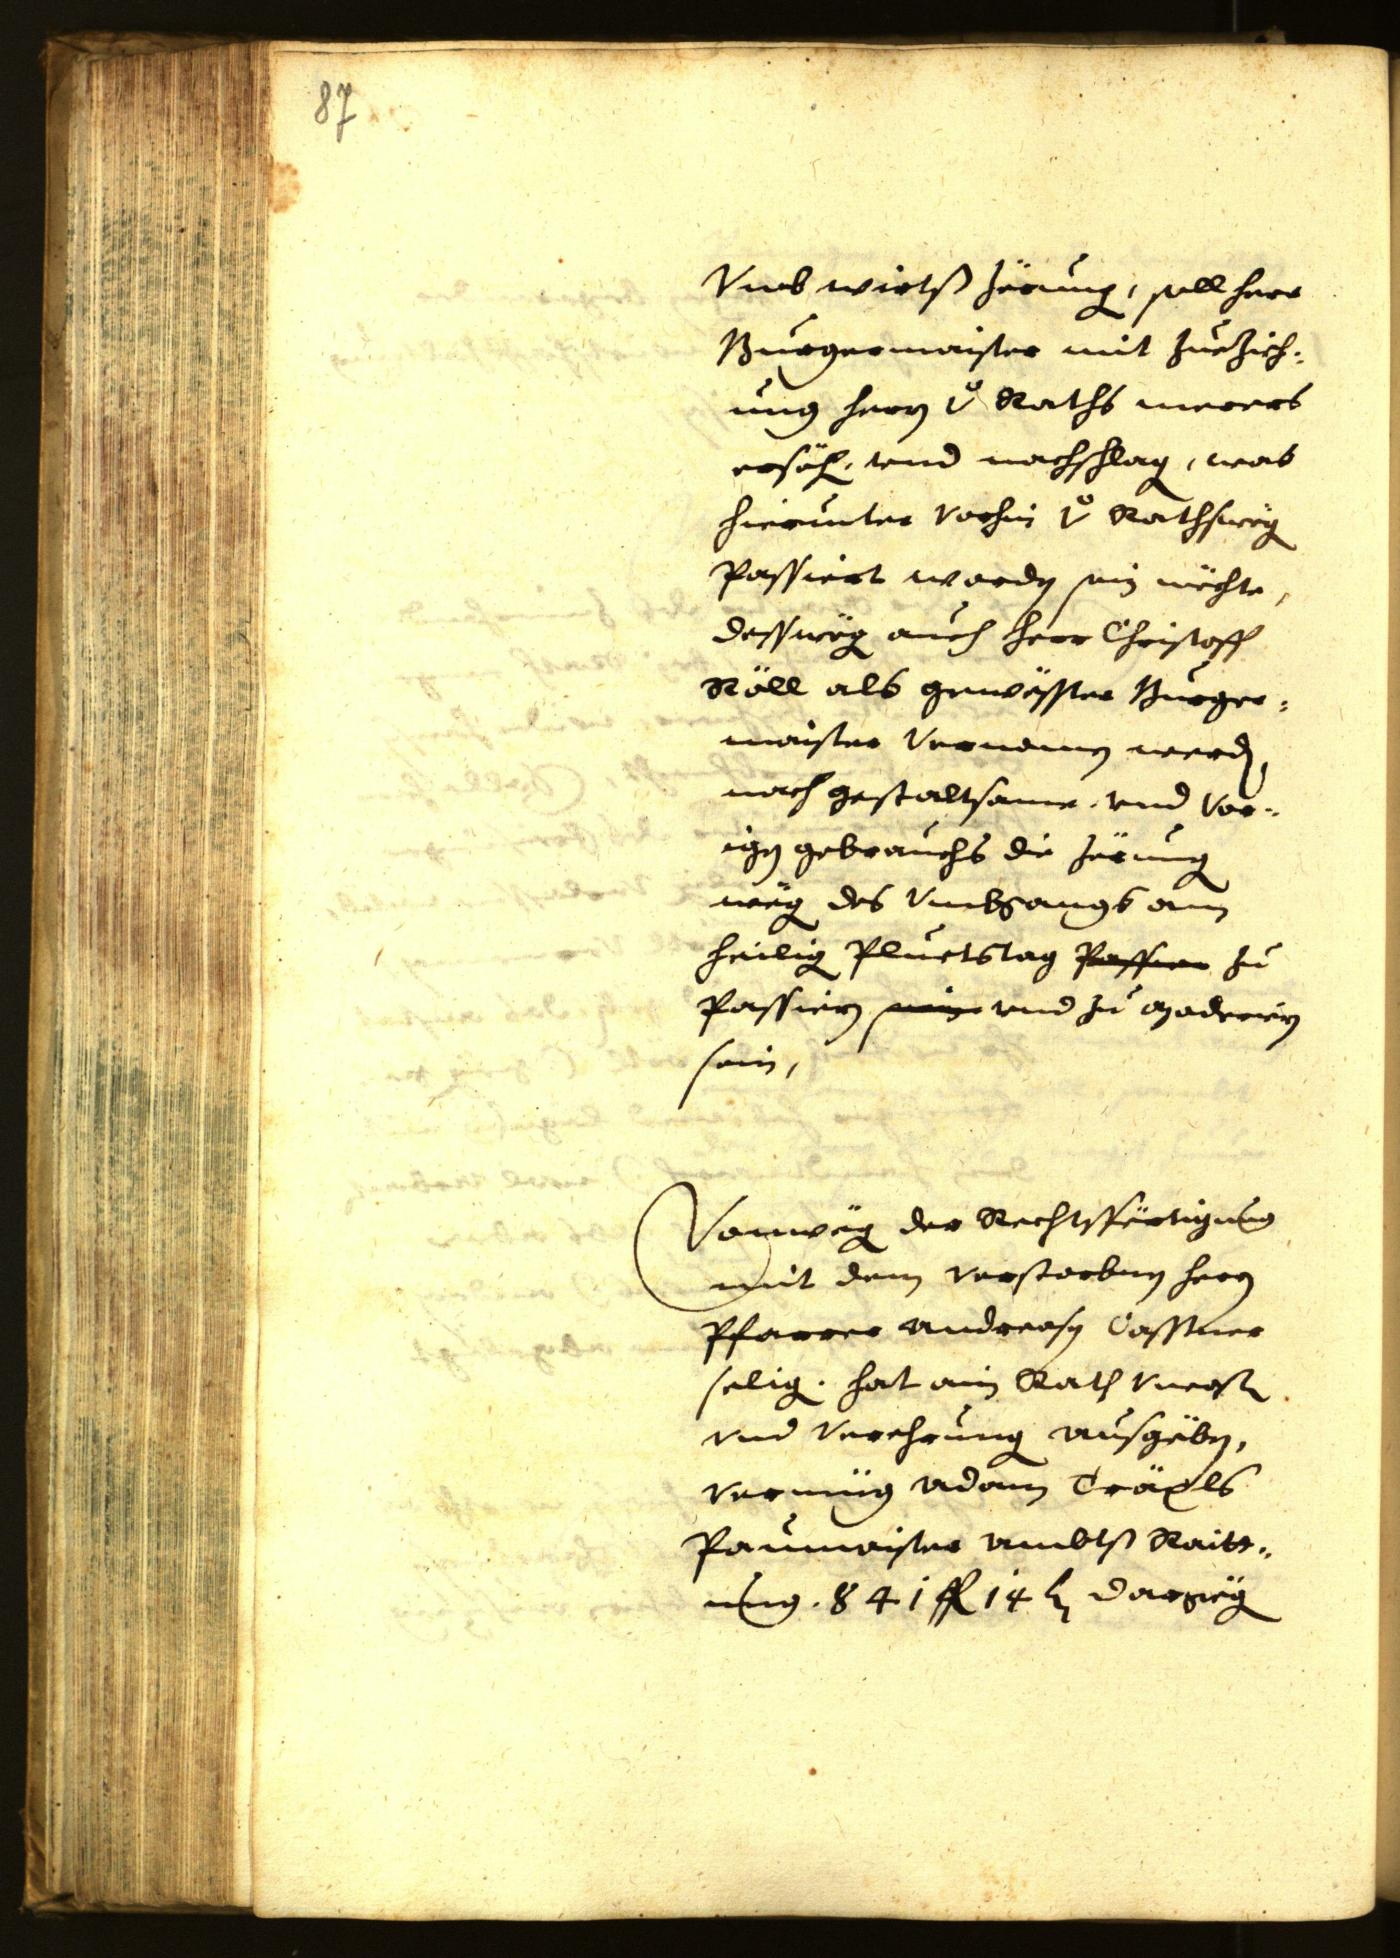 87
Vmb wirtß Zörung, soll herr
Burgermaister mit Zuezieh-
ung herrn v Raths merers
ersech, vnd nachschlag, was
hierunter vorhin v Rathsweg
Passiert worden sein möchte,
dessweg auch herr Christoff
Röll als gewesster Burger-
maister vernomen werd,
nach gestaltsame, vnd vor-
igen gebrauchs die Zörung
weg des Vmbgangs am
heilig Pluetstag Passier zu
Passiern sein vnd zu moderiern
sein,
Vonweg der Rechtsfertigung
mit dem verstorbnen herrn
Pfarrer Andreasn Casstner
selig. hat ain Rath
vnd Verehrung ausgeben,
vermüg Adam Träxls
Paumaister Ambtß Raitt-
ung. 841 fl 14 k dargeg